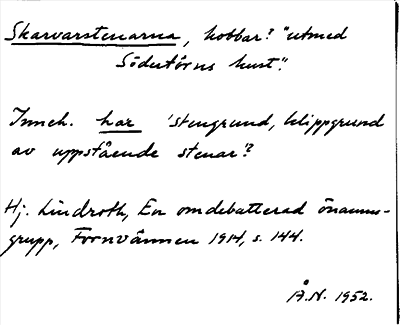 Skarvarstenarna, kobbar? "utmed
Södertörns kust".
Inneh. har 'stengrund, klippgrund
av uppstående stenar'?
Hj. Lindroth, En omdebatterad önamns-
grupp, Fornvännen 1914, s. 144.
Å.N. 1952.